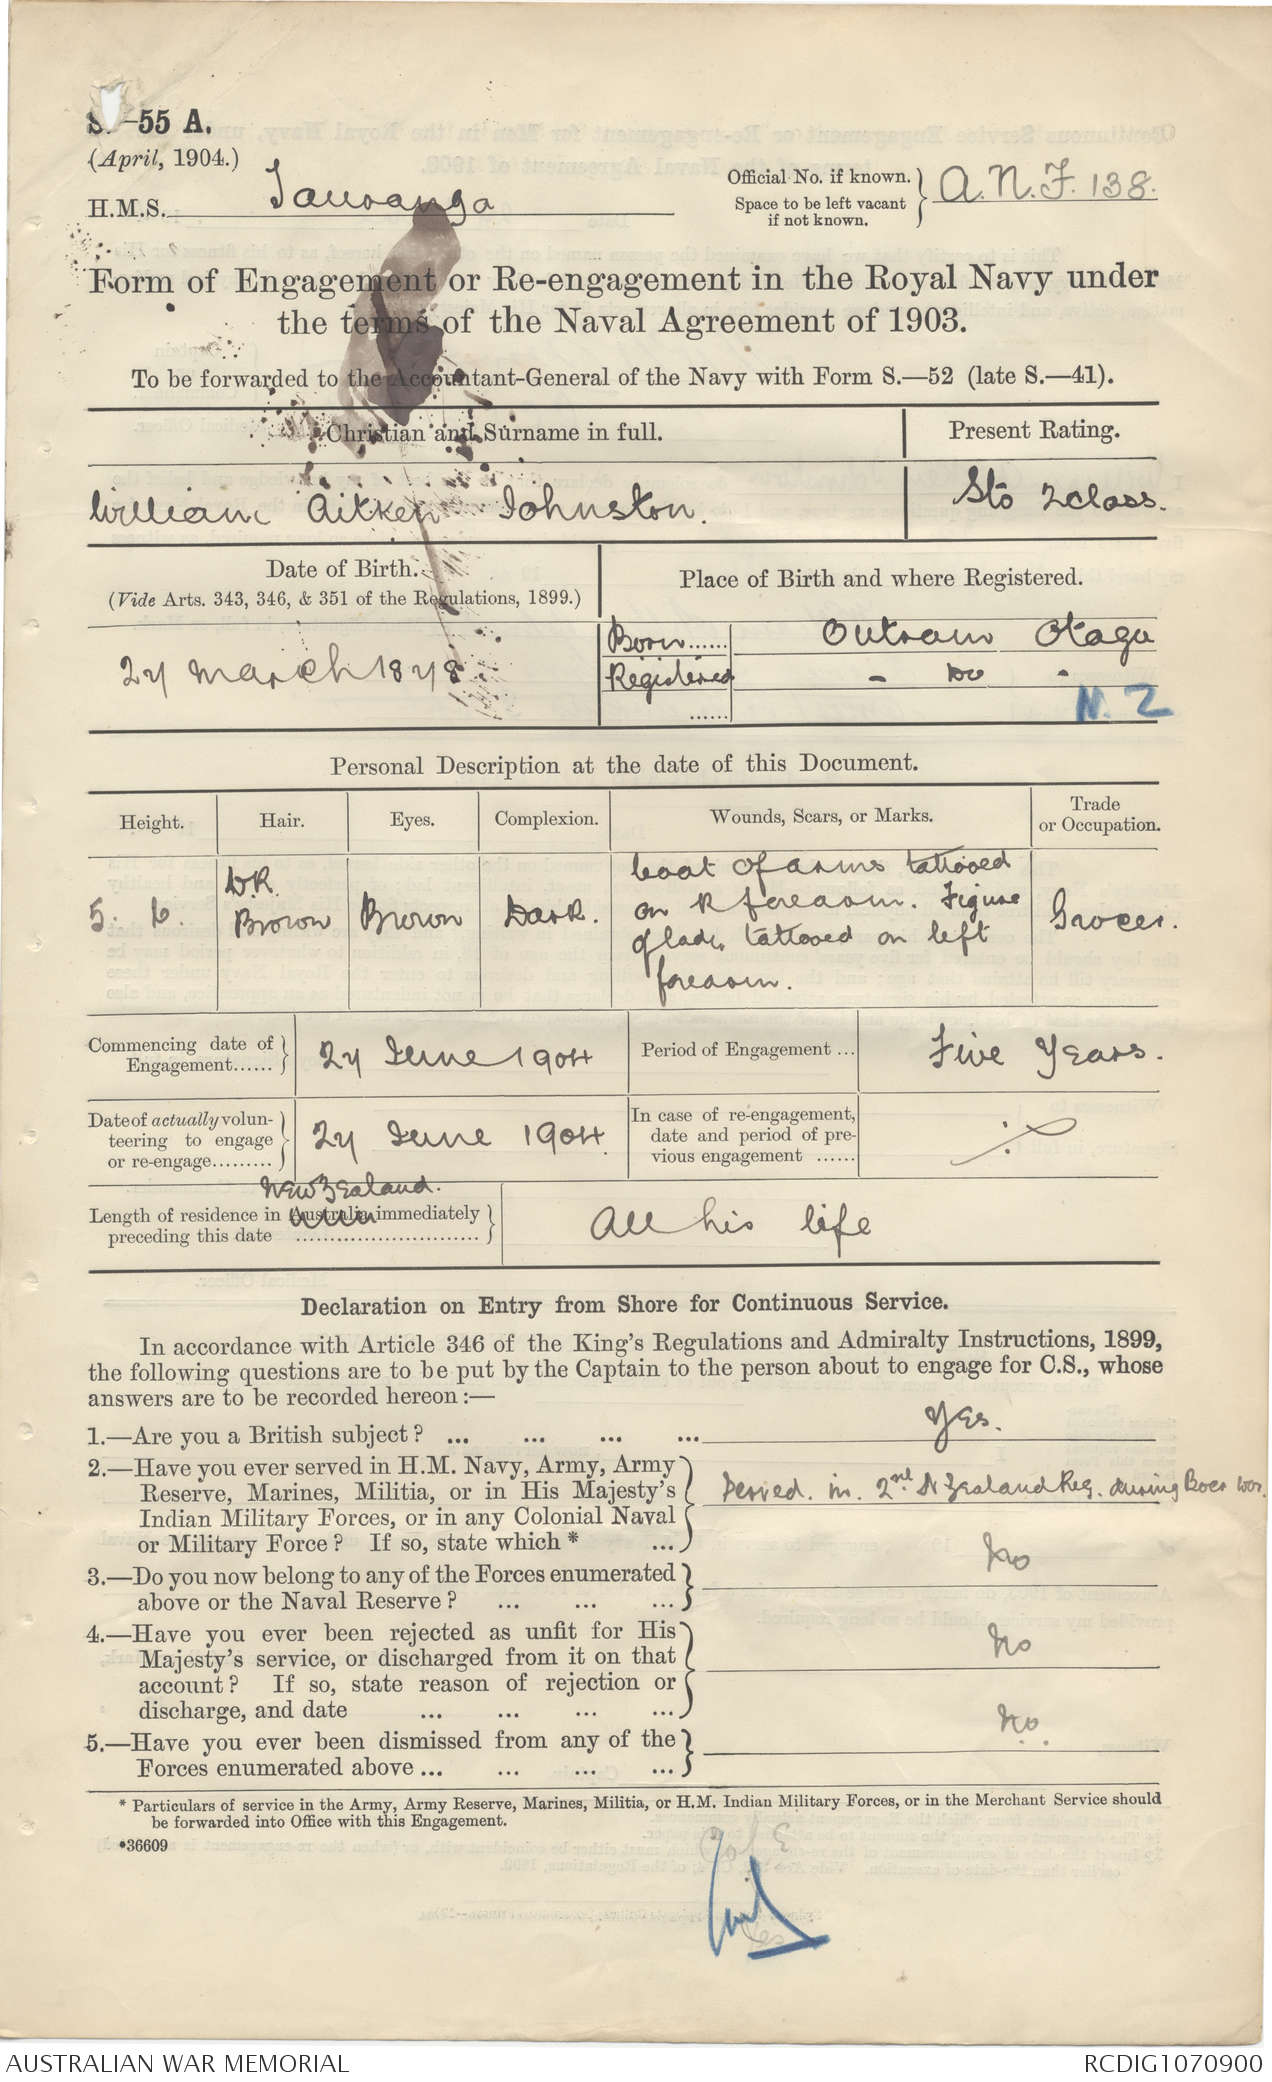 S.—55 A.
(April, 1904.)
H.M.S. Tauranga
Official No. if known.
Space to be left vacant
if not known.
A.N.F. 138.
Form of Engagement or Re-engagement in the Royal Navy under
the terms of the Naval Agreement of 1903.
To be forwarded to the Accountant-General of the Navy with Form S.—52 (late S.—41).
Christian and Surname in full.
Present Rating.
William Aitken Johnston.
Sto 2 class.
Date of Birth.
(Vide Arts. 343, 346, & 351 of the Regulations, 1899.)
Place of Birth and where Registered.
27 March 1878
Born...... Outram Otago
Registered - Do -
......
N. Z
Personal Description at the date of this Document.
Height.
Hair.
Eyes.
Complexion.
Wounds, Scars, or Marks.
Trade
or Occupation.
5. 6.
DK.
Brown
Brown
Dark.
Coat of arms tattooed
on R forearm. Figure
of lady tattooed on left
forearm.
Grocer.
Commencing date of
Engagement......
27 June 1904
Period of Engagement ...
Five Years.
Date of actually volun-
teering to engage
or re-engage.........
27 June 1904
In case of re-engagement,
date and period of pre-
vious engagement ......
New Zealand.
Length of residence in Australia immediately
preceding this date ............................
All his life
Declaration on Entry from Shore for Continuous Service.
In accordance with Article 346 of the King's Regulations and Admiralty Instructions, 1899,
the following questions are to be put by the Captain to the person about to engage for C.S., whose
answers are to be recorded hereon :—
1.—Are you a British subject? ... ... ... ...
Yes.
2.—Have you ever served in H.M. Navy, Army, Army
Reserve, Marines, Militia, or in His Majesty's
Indian Military Forces, or in any Colonial Naval
or Military Force? If so, state which * ...
Served in 2nd N Zealand Reg. during Boer war.
3.—Do you now belong to any of the Forces enumerated
above or the Naval Reserve? ... ... ...
No
4.—Have you ever been rejected as unfit for His
Majesty's service, or discharged from it on that
account? If so, state reason of rejection or
discharge, and date ... ... ... ...
No
5.—Have you ever been dismissed from any of the
Forces enumerated above ... ... ... ...
No.
* Particulars of service in the Army, Army Reserve, Marines, Militia, or H.M. Indian Military Forces, or in the Merchant Service should
be forwarded into Office with this Engagement.
*36609
AUSTRALIAN WAR MEMORIAL
RCDIG1070900